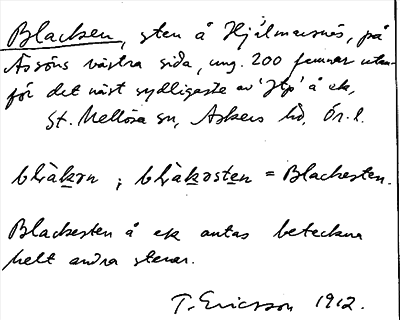 Blacken, sten å Hjälmarsnäs, på
Åssöns västra sida, ung. 200 famnar utan-
för det näst sydligaste av 'Htp' å ek,
St. Mellösa sn, Askers hd, Ör. l.
blàkən ; blàkəsten = Blackesten.
Blackesten å ek antas beteckna
helt andra stenar.
T. Ericsson 1912.